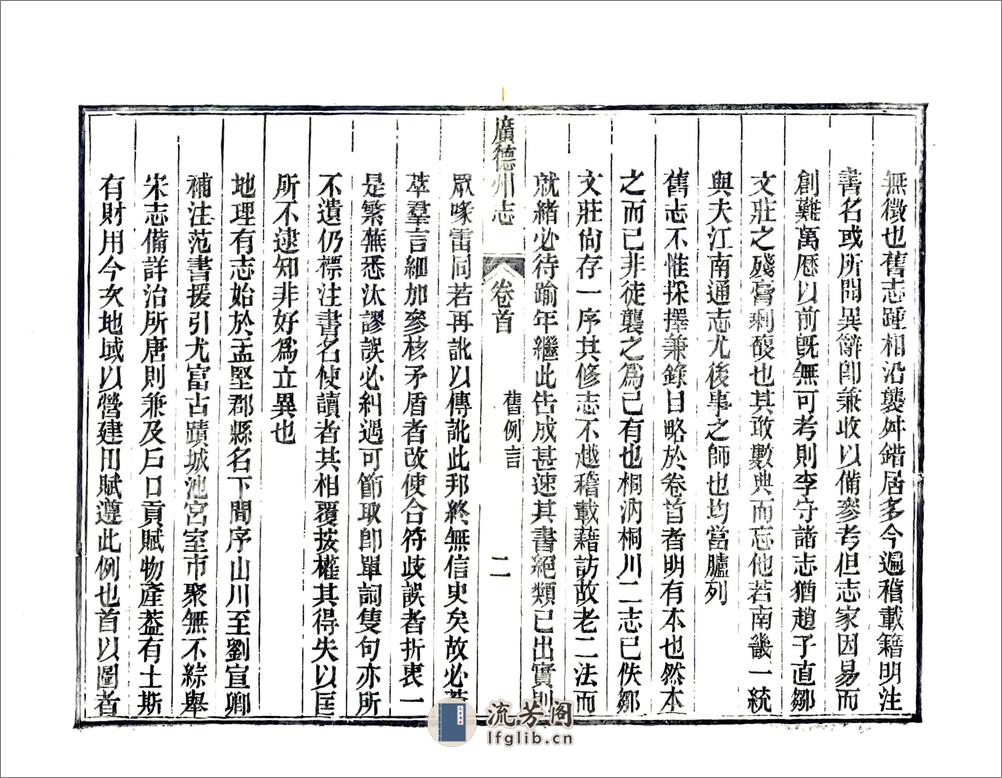 無徵也舊志踵相沿襲舛錯居多今遍稽載籍明注
書名或所聞異辭卽兼收以備參考但志家因易而
創難萬厯以前旣無可考則李守諸志猶趙子直鄒
文莊之殘膏剩馥也其敢數典而忘他若南畿一統
與夫江南通志尤後事之師也均當臚列
舊志不惟採擇兼錄目略於卷首者明有本也然本
之而已非徒襲之爲已有也桐汭桐川二志已佚鄒
文莊尙存一序其修志不越稽載籍訪故老二法而
就緒必待踰年繼此告成甚速其書絕類已出實則
廣德州志
卷首
舊例言
二
眾喙雷同若再訛以傳訛此邦終無信史矣故必薈
萃羣言細加參核矛盾者改使合符歧誤者折衷一
是繁蕪悉汰謬誤必糾過可節取卽單詞隻句亦所
不遺仍標注書名使讀者共相覆按權其得失以匡
所不逮知非好爲立異也
地理有志始於孟堅郡縣名下間序山川至劉宣卿
補注范書援引尤富古蹟城池宮室市聚無不綜舉
宋志備詳治所唐則兼及戸口貢賦物產葢有土斯
有財用今次地域以營建田賦遵此例也首以圖者
流芳阁
lfglib.cn